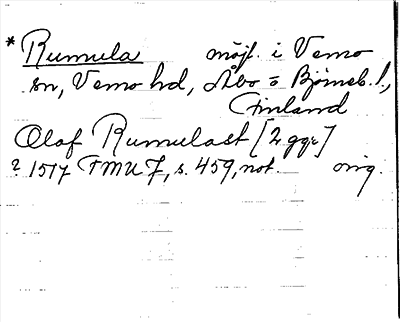 * Rumula möjl. i Vemo
sn, Vemo hd, Åbo o Björneb. l.,
Finland
Olof Rumulast [2 ggr]
? 1517 FMU 7, s. 459, not. orig.